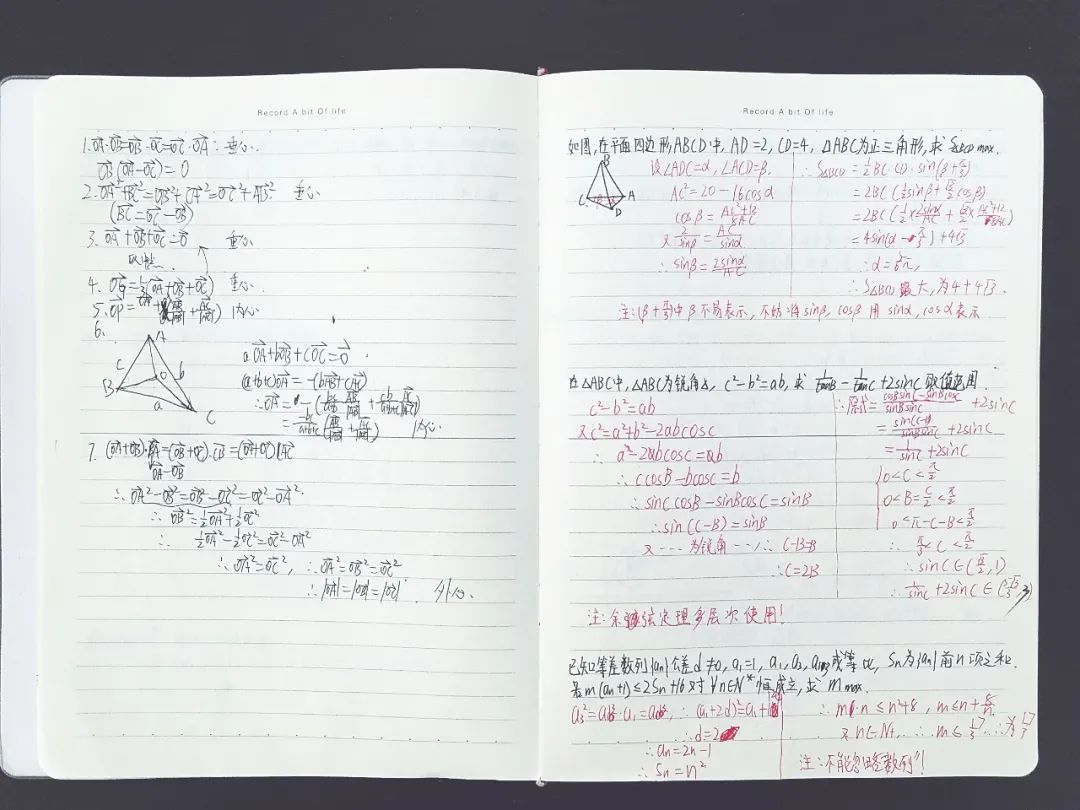 Record A bit Of life
1. OA·OB=OB·OC=OC·OA:垂心.
OB(OA-OC)=0
2. OA²+BC²=OB²+CA²=OC²+AB². 垂心
(BC=OC-OB)
3. OA+OB+OC=0 重心
4. OG=1/3(OA+OB+OC) 重心.
5. OP=OA+(AB/|AB|+AC/|AC|) 内心
6.
A
c
O
b
B
a
C
aOA+bOB+cOC=0.
(a+b+c)OA=-(bAB+cAC)
∴OA=
内心.
7. (OA+OB)·BA=(OB+OC)·CB=(OA+OC)·AC
OA-OB
∴OA²-OB²=OB²-OC²=OC²-OA².
∴OB²=1/2OA²+1/2OC²
∴ 1/2OA²-1/2OC²=OC²-OA²
∴OA²=OC², ∴OA²=OB²=OC²
∴|OA|=|OB|=|OC|. 外心.
Record A bit Of life
如图,在平面四边形ABCD中,AD=2,CD=4,△ABC为正三角形,求S△BCD max.
B
C
β
α
A
D
设∠ADC=α,∠ACD=β.
AC²=20-16cosα
cosβ=(AC²+12)/8AC
又2/sinβ=AC/sinα
∴sinβ=2sinα/AC
∴S△BCD=1/2BC·CD·sin(β+π/3)
=2BC(1/2sinβ+√3/2cosβ)
=2BC(1/2×2sinα/AC+√3/2×(AC²+12)/8AC)
=4sin(α-π/3)+4√3
∴α=5/6π,
∴S△BCD最大,为4+4√3.
注:(β+π/3)中β不易表示,不妨将sinβ,cosβ用sinα,cosα表示
在△ABC中,△ABC为锐角△,c²-b²=ab,求1/tanB-1/tanC+2sinC取值范围.
c²-b²=ab
又c²=a²+b²-2abcosC
∴a²-2abcosC=ab
∴ccosB-bcosC=b
∴sinCcosB-sinBcosC=sinB
∴sin(C-B)=sinB
又····为锐角···∴C-B=B
∴C=2B
∴原式=(cosBsinC-sinBcosC)/sinBsinC+2sinC
=sin(C-B)/sinBsinC+2sinC
=1/sinC+2sinC
{0<C<π/2
0<B=C/2<π/2
0<π-C-B<π/2
∴π/3<C<π/2
∴sinC∈(√3/2,1)
∴1/sinC+2sinC∈(5√3/3,3)
注:余弦定理多层次使用!
已知等差数列{an}公差d≠0,a₁=1,a₁,a₃,a₁₃成等比,Sn为{an}前n项之和.
若m(an+1)≤2Sn+16对∀n∈N*恒成立,求m max.
∴(a₁+2d)²=a₁+12d
∴d=2
∴an=2n-1
∴Sn=n²
∴m·n≤n²+8,m≤n+8/n.
又n∈N+,∴m≤17/3,∴为17/3
注:不能忽略数列!